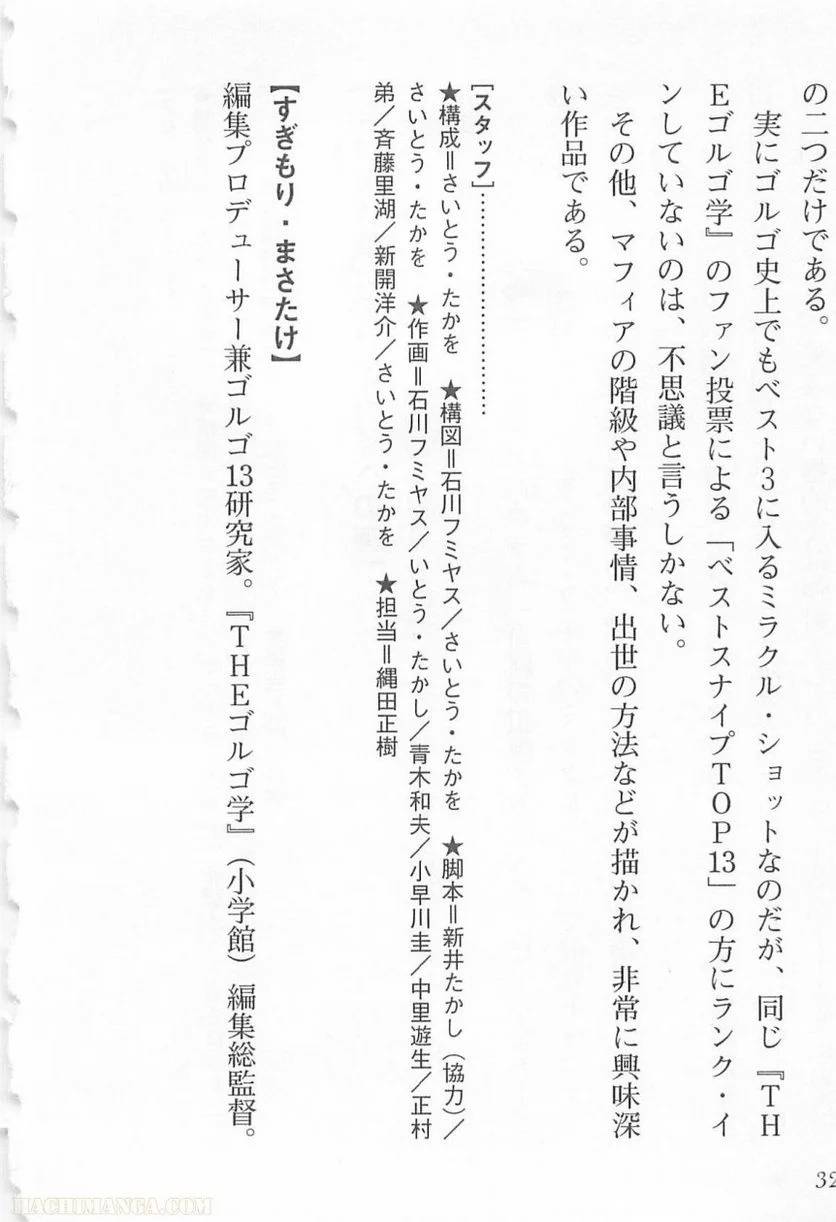 の二つだけである。
実にゴルゴ史上でもベスト3に入るミラクル・ショットなのだが、同じ『TH
Eゴルゴ学』のファン投票による「ベストスナイプTOP13」の方にランク・イ
ンしていないのは、不思議と言うしかない。
その他、マフィアの階級や内部事情、出世の方法などが描かれ、非常に興味深
い作品である。
[スタッフ]……………………………
★構成＝さいとう・たかを　★構図＝石川フミヤス／さいとう・たかを　★脚本＝新井たかし（協力）／
さいとう・たかを　★作画＝石川フミヤス／いとう・たかし／青木和夫／小早川圭／中里遊生／正村
弟／斉藤里湖／新開洋介／さいとう・たかを　★担当＝縄田正樹
【すぎもり・まさたけ】
編集プロデューサー兼ゴルゴ13研究家。『THEゴルゴ学』（小学館）編集総監督。
32
HACHIMANGA.COM